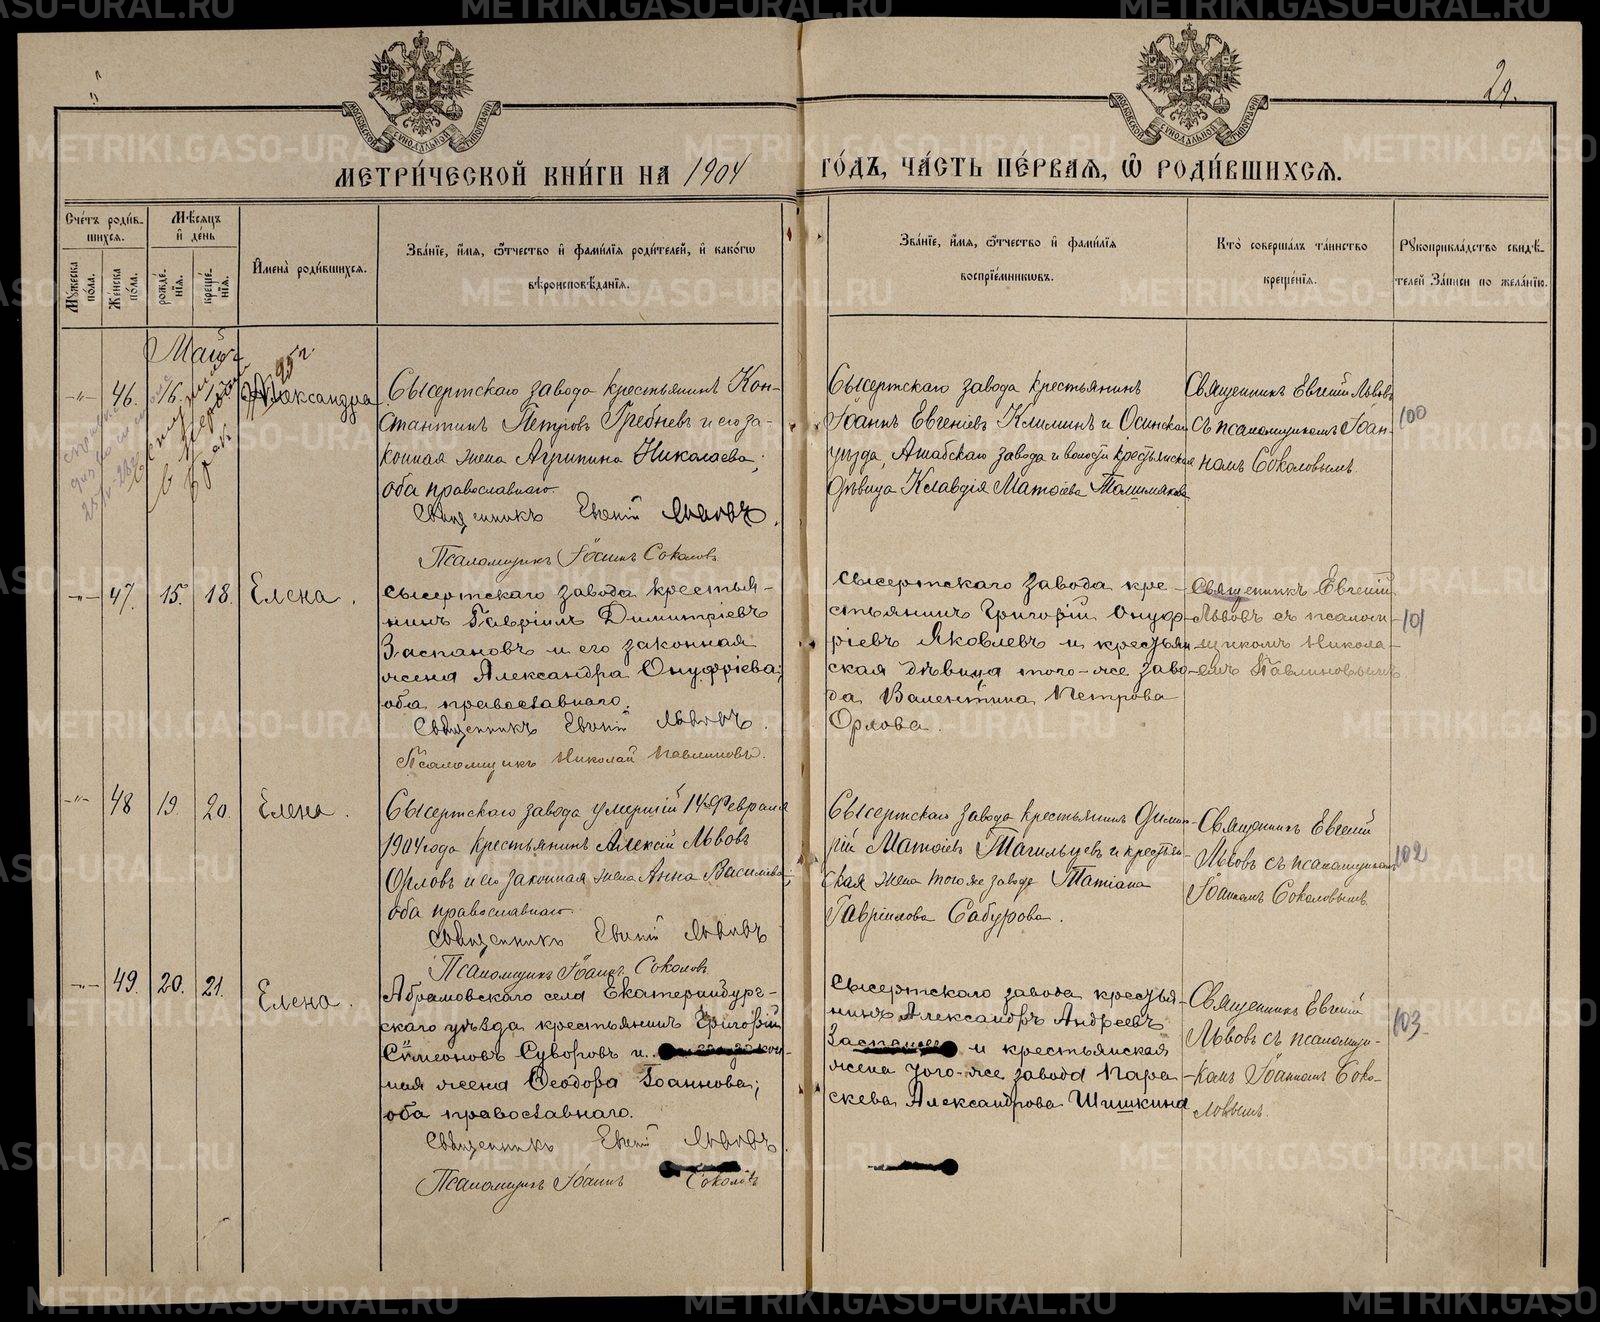 29.
МОСКОВСКОЙ СѴНОДАЛЬНОЙ ТИПОГРАФІИ
МОСКОВСКОЙ СѴНОДАЛЬНОЙ ТИПОГРАФІИ
МЕТРИ́ЧЕСКОЙ КНИ́ГИ НА 1904 ГО́ДЪ, ЧА́СТЬ ПЕ́РВАЯ, Ѡ҆ РОДИ́ВШИХСЯ.
Сче́тъ роди́в-
шихся.
Му́жеска по́ла.
Же́нска по́ла.
Мѣ́сяцъ
и҆ де́нь
рожде́-
нїя.
креще́-
нїя.
И҆мена̀ роди́вшихся.
Зва́нїе, и҆́мя, ѻ҆́тчество и҆ фами́лїя роди́телей, и҆ како́гѡ
вѣроисповѣ́данїя.
Зва́нїе, и҆́мя, ѻ҆́тчество и҆ фами́лїя
воспрїе́мникѡвъ.
Кто̀ соверша́лъ та́инство
креще́нїя.
Рꙋкоприкла́дство свидѣ́-
телей за́писи по жела́нїю.
Май
-"- 46. 16. 17. Александра
Сысертскаго завода крестьянинъ Кон-
стантинъ Петровъ Гребневъ и его за-
конная жена Агрипина Николаева;
оба православнаго.
Священникъ Евгеній Львовъ.
Псаломщикъ Іоаннъ Соколовъ
Сысертскаго завода крестьянинъ
Іоаннъ Евгеніевъ Климинъ и Осинскаго
уѣзда, Ашабскаго завода и волости крестьянская
дѣвица Клавдія Матѳіева
Священникъ Евгеній Львовъ
съ псаломщикомъ Іоан-
номъ Соколовымъ.
100
-"- 47. 15. 18. Елена.
Сысертскаго завода крестья-
нинъ Гавріилъ Димитріевъ
Заспановъ и его законная
жена Александра Онуфріева;
оба православнаго.
Священникъ Евгеній Львовъ.
Псаломщикъ Николай Павлиновъ.
Сысертскаго завода кре-
стьянинъ Григорій Онуф-
ріевъ Яковлевъ и крестьян-
ская дѣвица того-же заво-
да Валентина Петрова
Орлова.
Священникъ Евгеній
Львовъ съ псалом-
щикомъ Никола-
емъ Павлиновымъ
101
-"- 48 19. 20. Елена.
Сысертскаго завода умершій 14 Февраля
1904 года крестьянинъ Алексій Львовъ
Орловъ и его законная жена Анна Васильева;
оба православнаго
Священникъ Евгеній Львовъ
Псаломщикъ Іоаннъ Соколовъ.
Сысертскаго завода крестьянинъ Димит-
рій Матѳіевъ Тагильцевъ и крестьян-
ская жена того же завода Татіана
Гавріилова Сабурова.
Священникъ Евгеній
Львовъ съ псаломщикомъ
Іоанномъ Соколовымъ.
102
-"- 49. 20. 21. Елена.
Абрамовскаго села Екатеринбург-
скаго уѣзда крестьянинъ Григорій
Сѵмеоновъ Суворовъ и его закон-
ная жена Ѳеодора Іоаннова;
оба православнаго.
Священникъ Евгеній Львовъ.
Псаломщикъ Іоаннъ Соколовъ
Сысертскаго завода крестья-
нинъ Александръ Андреевъ
и крестьянская
жена того-же завода Пара-
скева Александрова Шишкина
Священникъ Евгеній
Львовъ съ псаломщи-
комъ Іоанномъ Соко-
ловымъ.
103
METRIKI.GASO-URAL.RU